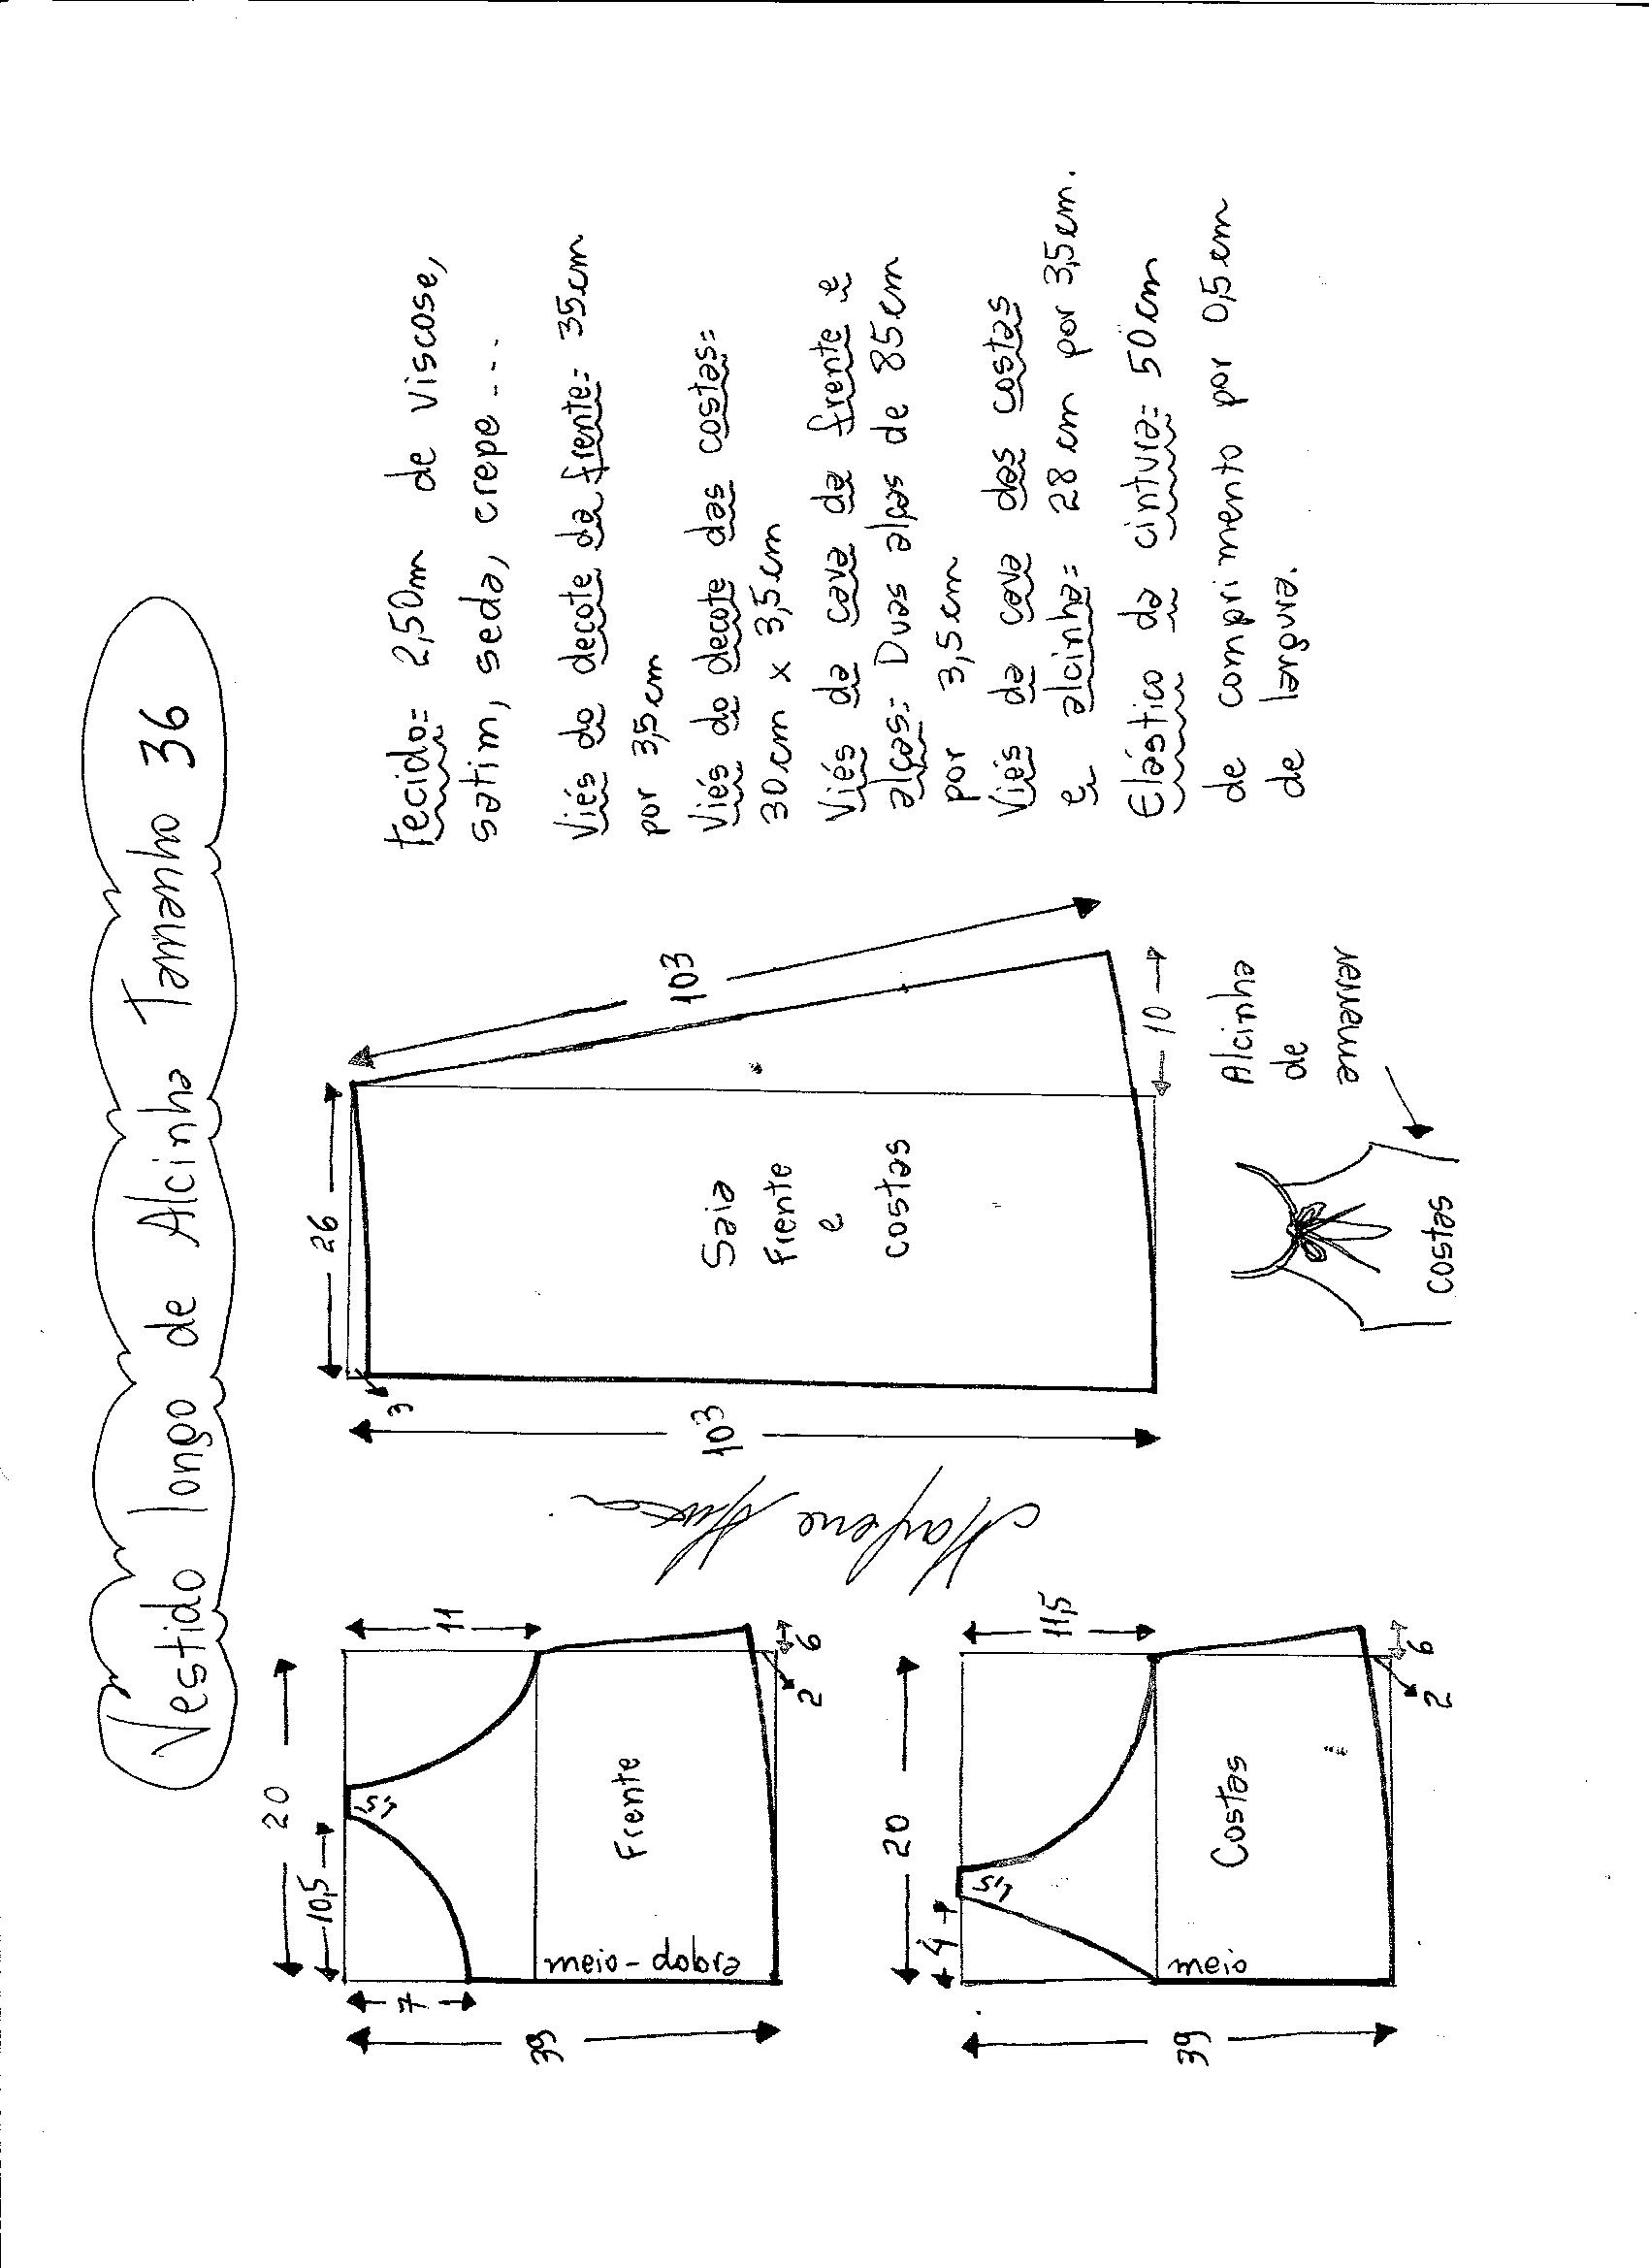 Vestido longo de Alcinha Tamanho 36
20
10,5
1,5
7
11
39
Frente
meio - dobra
6
2
20
4
1,5
11,5
39
Costas
meio
6
2
26
3
103
103
Saia
Frente
e
costas
10
Alcinha
de
amarrar
costas
tecido= 2,50m de viscose,
satim, seda, crepe ....
Viés do decote da frente= 35cm
por 3,5cm
Viés do decote das costas=
30cm x 3,5cm
Viés da cava da frente e
alças= Duas alças de 85cm
por 3,5cm
Viés da cava das costas
e alcinha= 28 cm por 3,5cm.
Elástico da cintura= 50cm
de comprimento por 0,5cm
de largura.